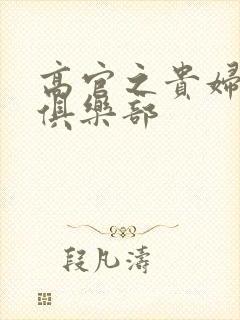 高官之貴婦
俱樂部
段凡濤